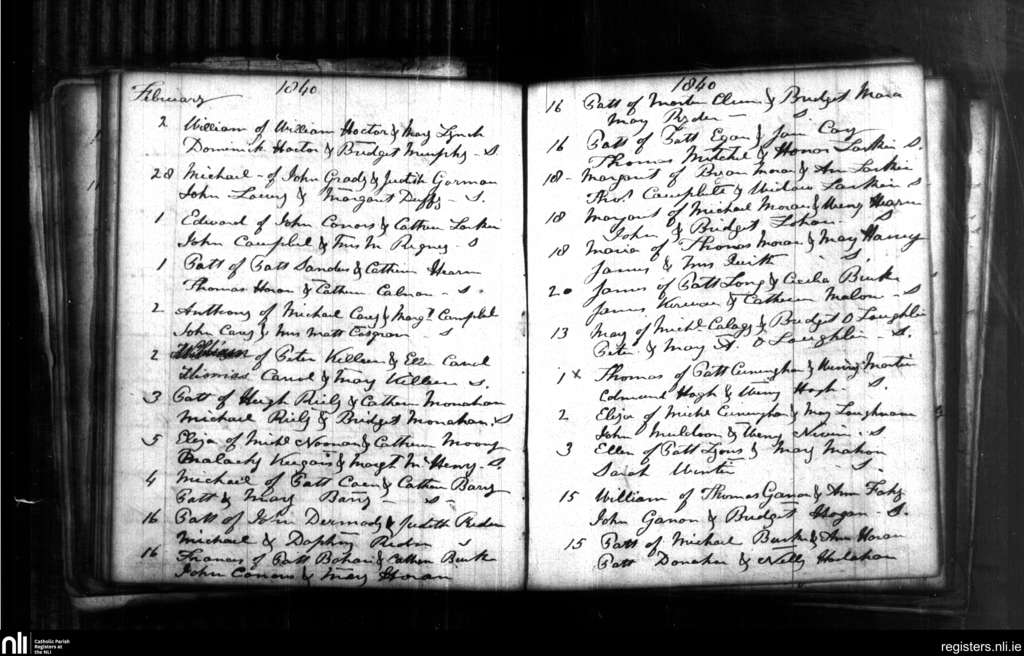 1840
February
2 William of William Hoctor & May Lynch
Dominick Hoctor & Bridget Murphy - S.
28 Michael - of John Grady & Judith Gorman
John Lowry & Margaret Duffy - S.
1 Edward of John Conors & Cathern Larkin
John Campbel & Mrs M - S
1 Patt of Patt Sandes & Cathern Hearn
Thomas Horan & Cathern Calnan - S -
2 Anthony of Michael Cary & Margt Campbel
John Cary & Mrs Matt S
2 of Peter Killeen & Ellen Carrol
Thomas Carrol & May Killeen S.
3 Patt of Hugh Riely & Cathern Monahan
Michael Riely & Bridget Monahan. S
5 Eliza of Michl Noonan & Cathern Moony
Malachy & Margt McHenry - S
4 Michael of Patt Caen & Cathern Barry
Patt & Mary Barry - S -
16 Patt of John Dermody & Judith Reden
Michael & Daphny Reden S
16 Frances of Patt Bohan & Cathern Burk
John Conors & May Horan
1840
16 Patt of Martin Clune & Bridget Mara
May Ryder - S
16 Patt of Patt Egan & Jane Cary
Thomas Mitchel & Honor Larkin S.
18 - Margaret of Bryan Moran & Ann Larkin
Thos. Campbell & Widow Larkin S
18 Margaret of Michael Moran & Hearn
John & Bridget Lohan. S
18 Maria of Thomas Moran & May Harney
James & Mrs Quirk S.
20 James of Patt Long & Cecilia Burke
James Kirwan & Cathern Malon - S
13 May of Michl Calagy & Bridget O Loughlin
Peter & May A. O Loughlin - S.
1 x Thomas of Patt Cunningham & Winny Martin
Edmund Hogh & Winny Hogh S.
2 Eliza of Michl Cunningham & May Loughnane
John Muldoon & Winny Nevin - S
3 Ellen of Patt Lyons & May Mahon
Sarah S.
15 William of Thomas Ganon & Ann Fahy
John Ganon & Bridget Hogan - S.
15 Patt of Michael Burk & Ann Horan
Patt Donahue & Nelly Holahan
nli
Catholic Parish
Registers at
the NLI
registers.nli.ie